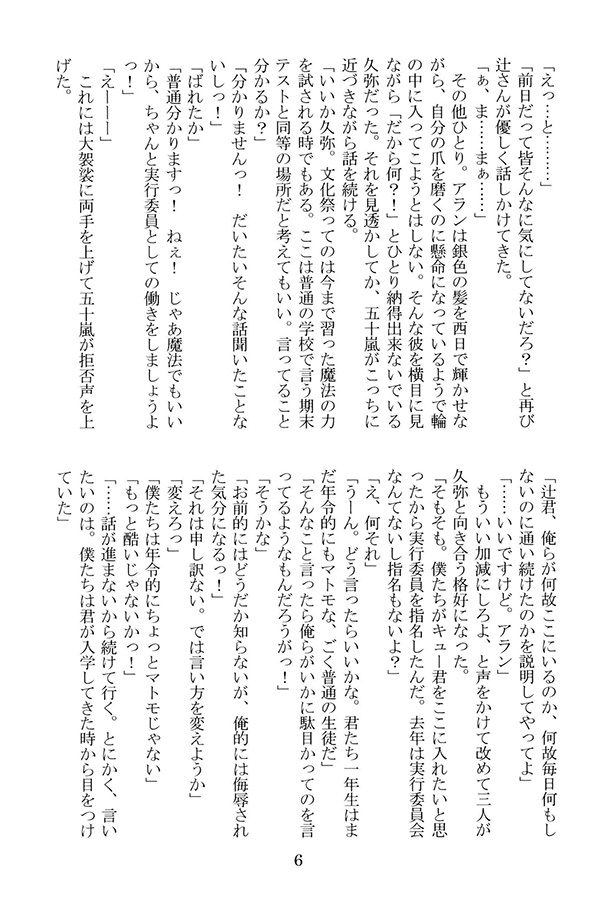 「えっ…と………」
「前日だって皆そんなに気にしてないだろ？」と再び
辻さんが優しく話しかけてきた。
「ぁ、ま……まぁ……」
その他ひとり。アランは銀色の髪を西日で輝かせな
がら、自分の爪を磨くのに懸命になっているようで輪
の中に入ってこようとはしない。そんな彼を横目に見
ながら「だから何？！」とひとり納得出来ないでいる
久弥だった。それを見透かしてか、五十嵐がこっちに
近づきながら話を続ける。
「いいか久弥。文化祭ってのは今まで習った魔法の力
を試される時でもある。ここは普通の学校で言う期末
テストと同等の場所だと考えてもいい。言ってること
分かるか？」
「分かりませんっ！　だいたいそんな話聞いたことな
いしっ！」
「ばれたか」
「普通分かりますっ！　ねぇ！　じゃあ魔法でもいい
から、ちゃんと実行委員としての働きをしましょうよ
っ！」
「えーーー」
これには大袈裟に両手を上げて五十嵐が拒否声を上
げた。
「辻君、俺らが何故ここにいるのか、何故毎日何もし
ないのに通い続けたのかを説明してやってよ」
「……いいですけど。アラン」
もういい加減にしろよ、と声をかけて改めて三人が
久弥と向き合う格好になった。
「そもそも。僕たちがキュー君をここに入れたいと思
ったから実行委員を指名したんだ。去年は実行委員会
なんてないし指名もないよ？」
「え、何それ」
「うーん。どう言ったらいいかな。君たち一年生はま
だ年令的にもマトモな、ごく普通の生徒だ」
「そんなこと言ったら俺らがいかに駄目かってのを言
ってるようなもんだろうがっ！」
「そうかな」
「お前的にはどうだか知らないが、俺的には侮辱され
た気分になるっ！」
「それは申し訳ない。では言い方を変えようか」
「変えろっ」
「僕たちは年令的にちょっとマトモじゃない」
「もっと酷いじゃないかっ！」
「……話が進まないから続けて行く。とにかく、言い
たいのは。僕たちは君が入学してきた時から目をつけ
ていた」
6